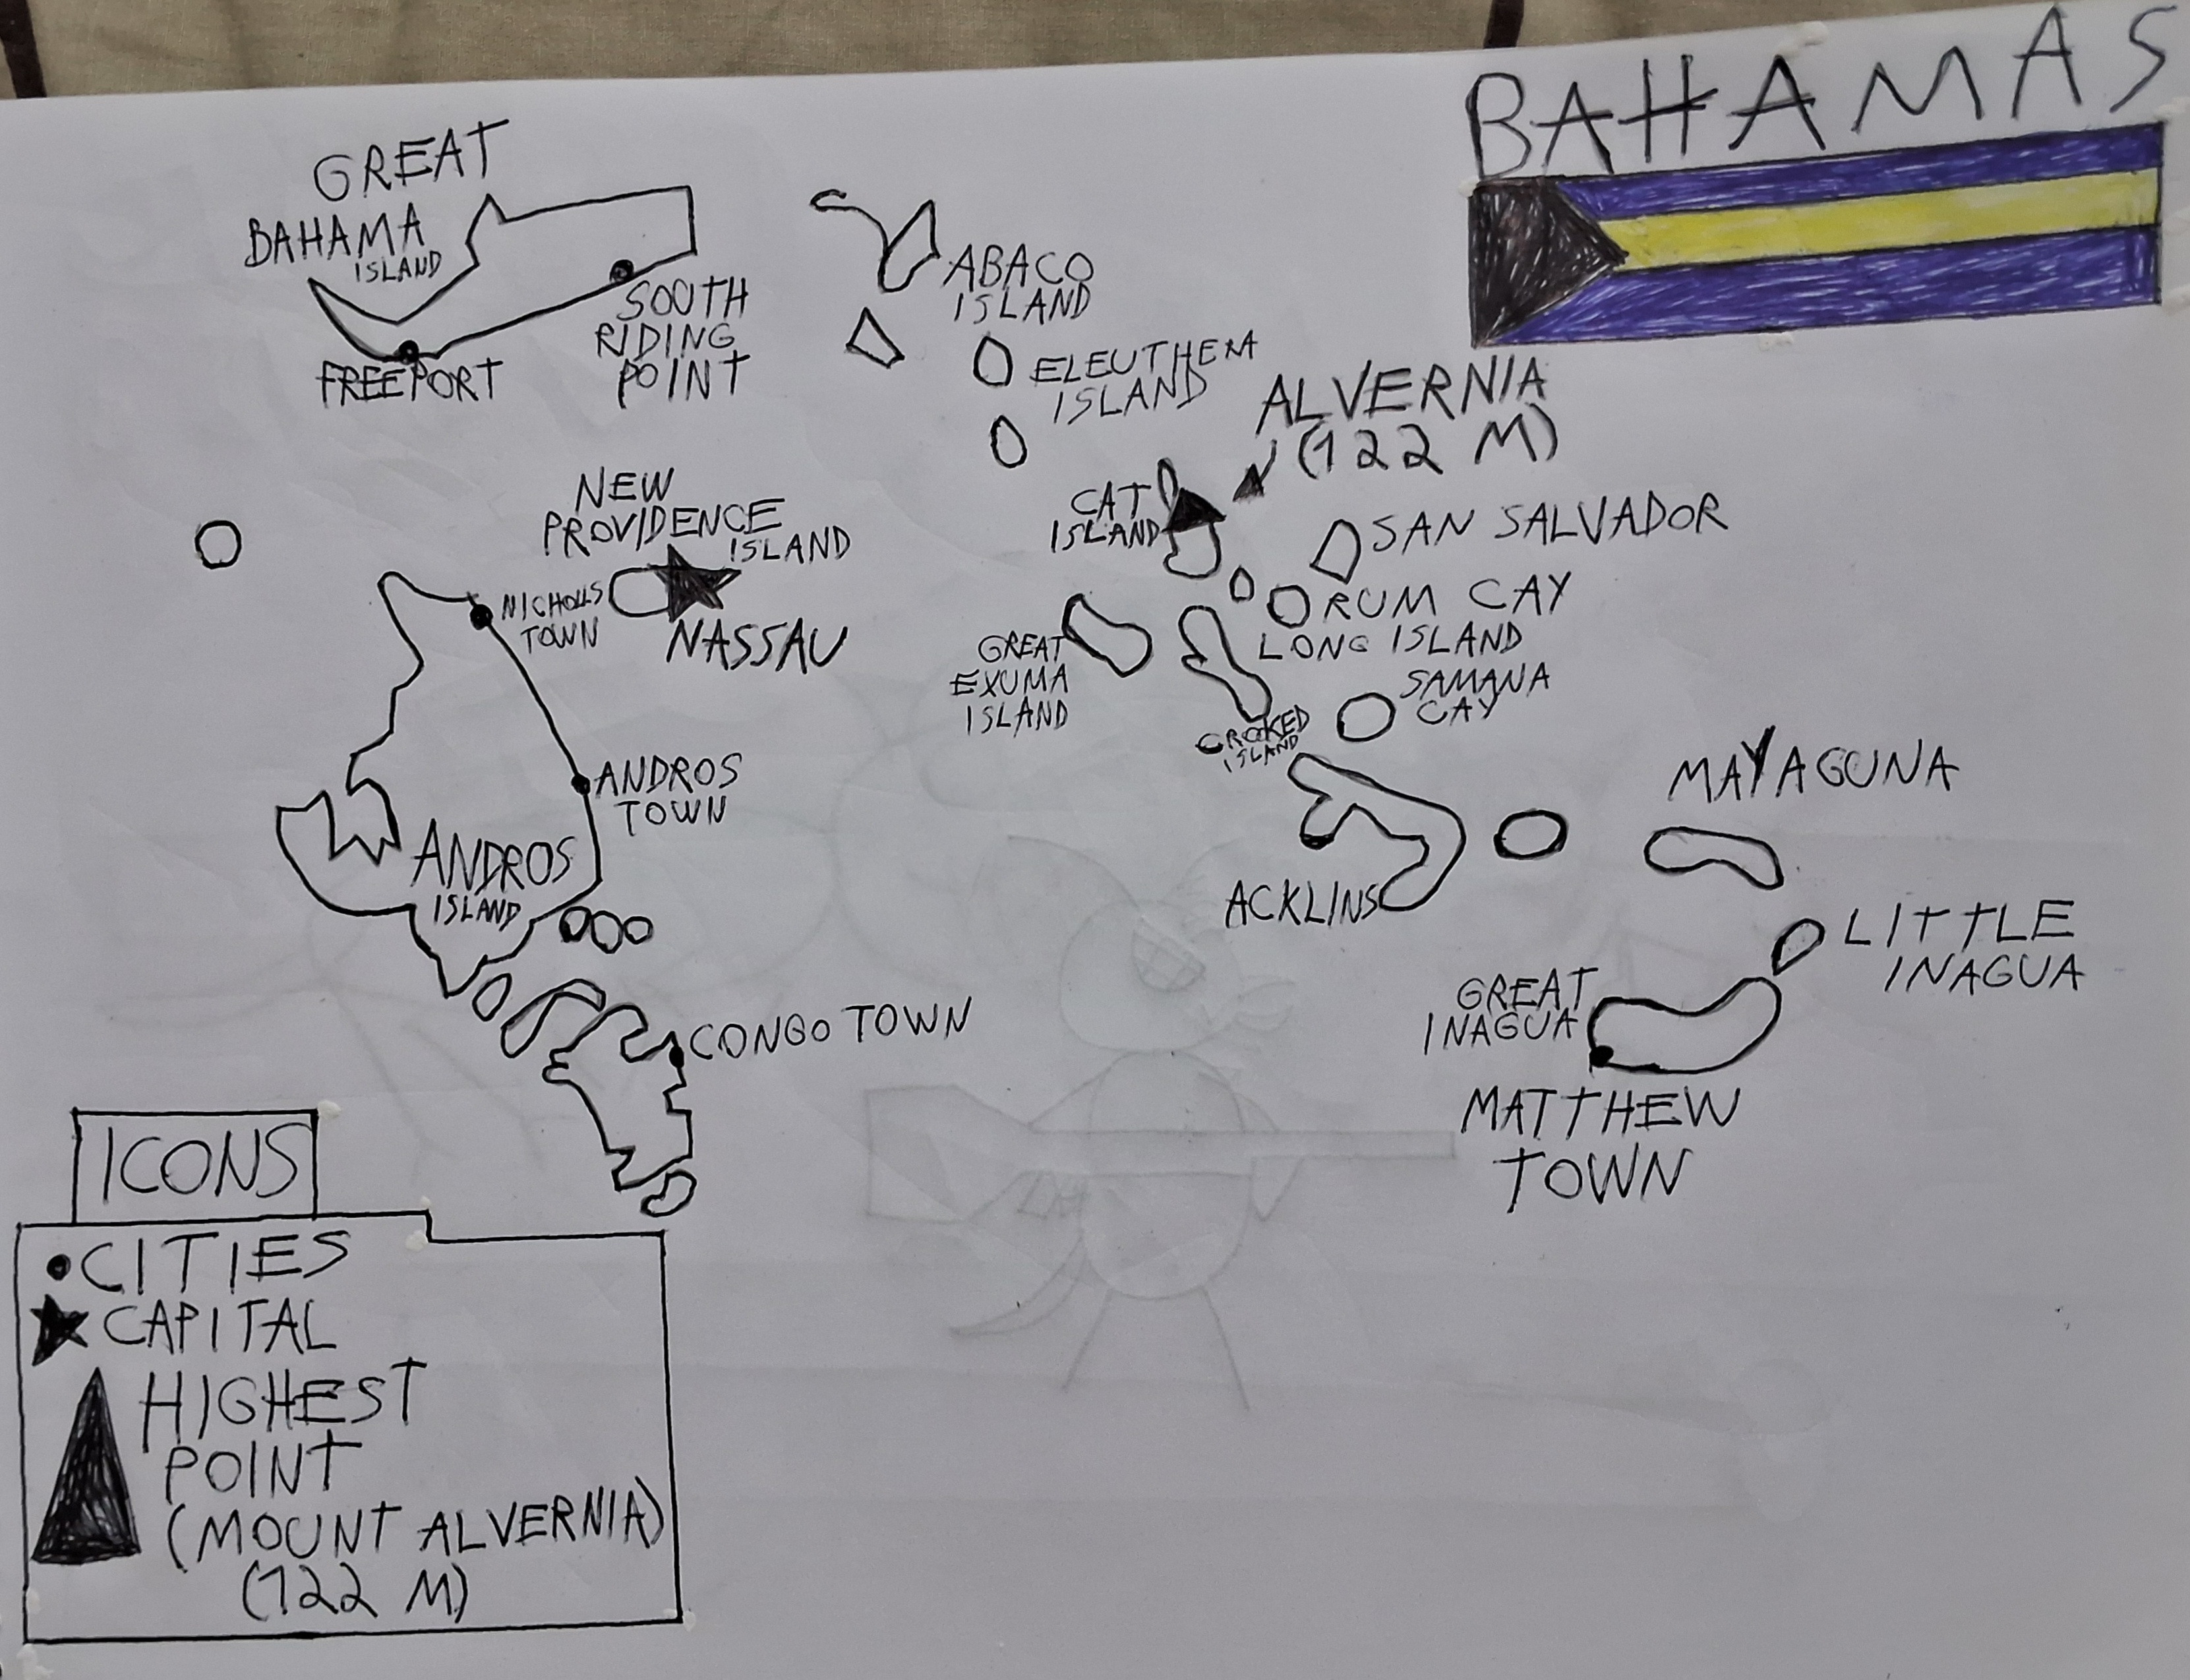 BAHAMAS
GREAT
BAHAMA
ISLAND
SOUTH
RIDING
POINT
FREEPORT
ABACO
ISLAND
ELEUTHERA
ISLAND
ALVERNIA
(122 M)
NEW
PROVIDENCE
ISLAND
NASSAU
NICHOLLS
TOWN
CAT
ISLAND
SAN SALVADOR
RUM CAY
LONG ISLAND
GREAT
EXUMA
ISLAND
SAMANA
CAY
CROOKED
ISLAND
ANDROS
TOWN
ANDROS
ISLAND
MAYAGUNA
ACKLINS
LITTLE
INAGUA
GREAT
INAGUA
CONGO TOWN
MATTHEW
TOWN
ICONS
CITIES
CAPITAL
HIGHEST
POINT
(MOUNT ALVERNIA)
(122 M)